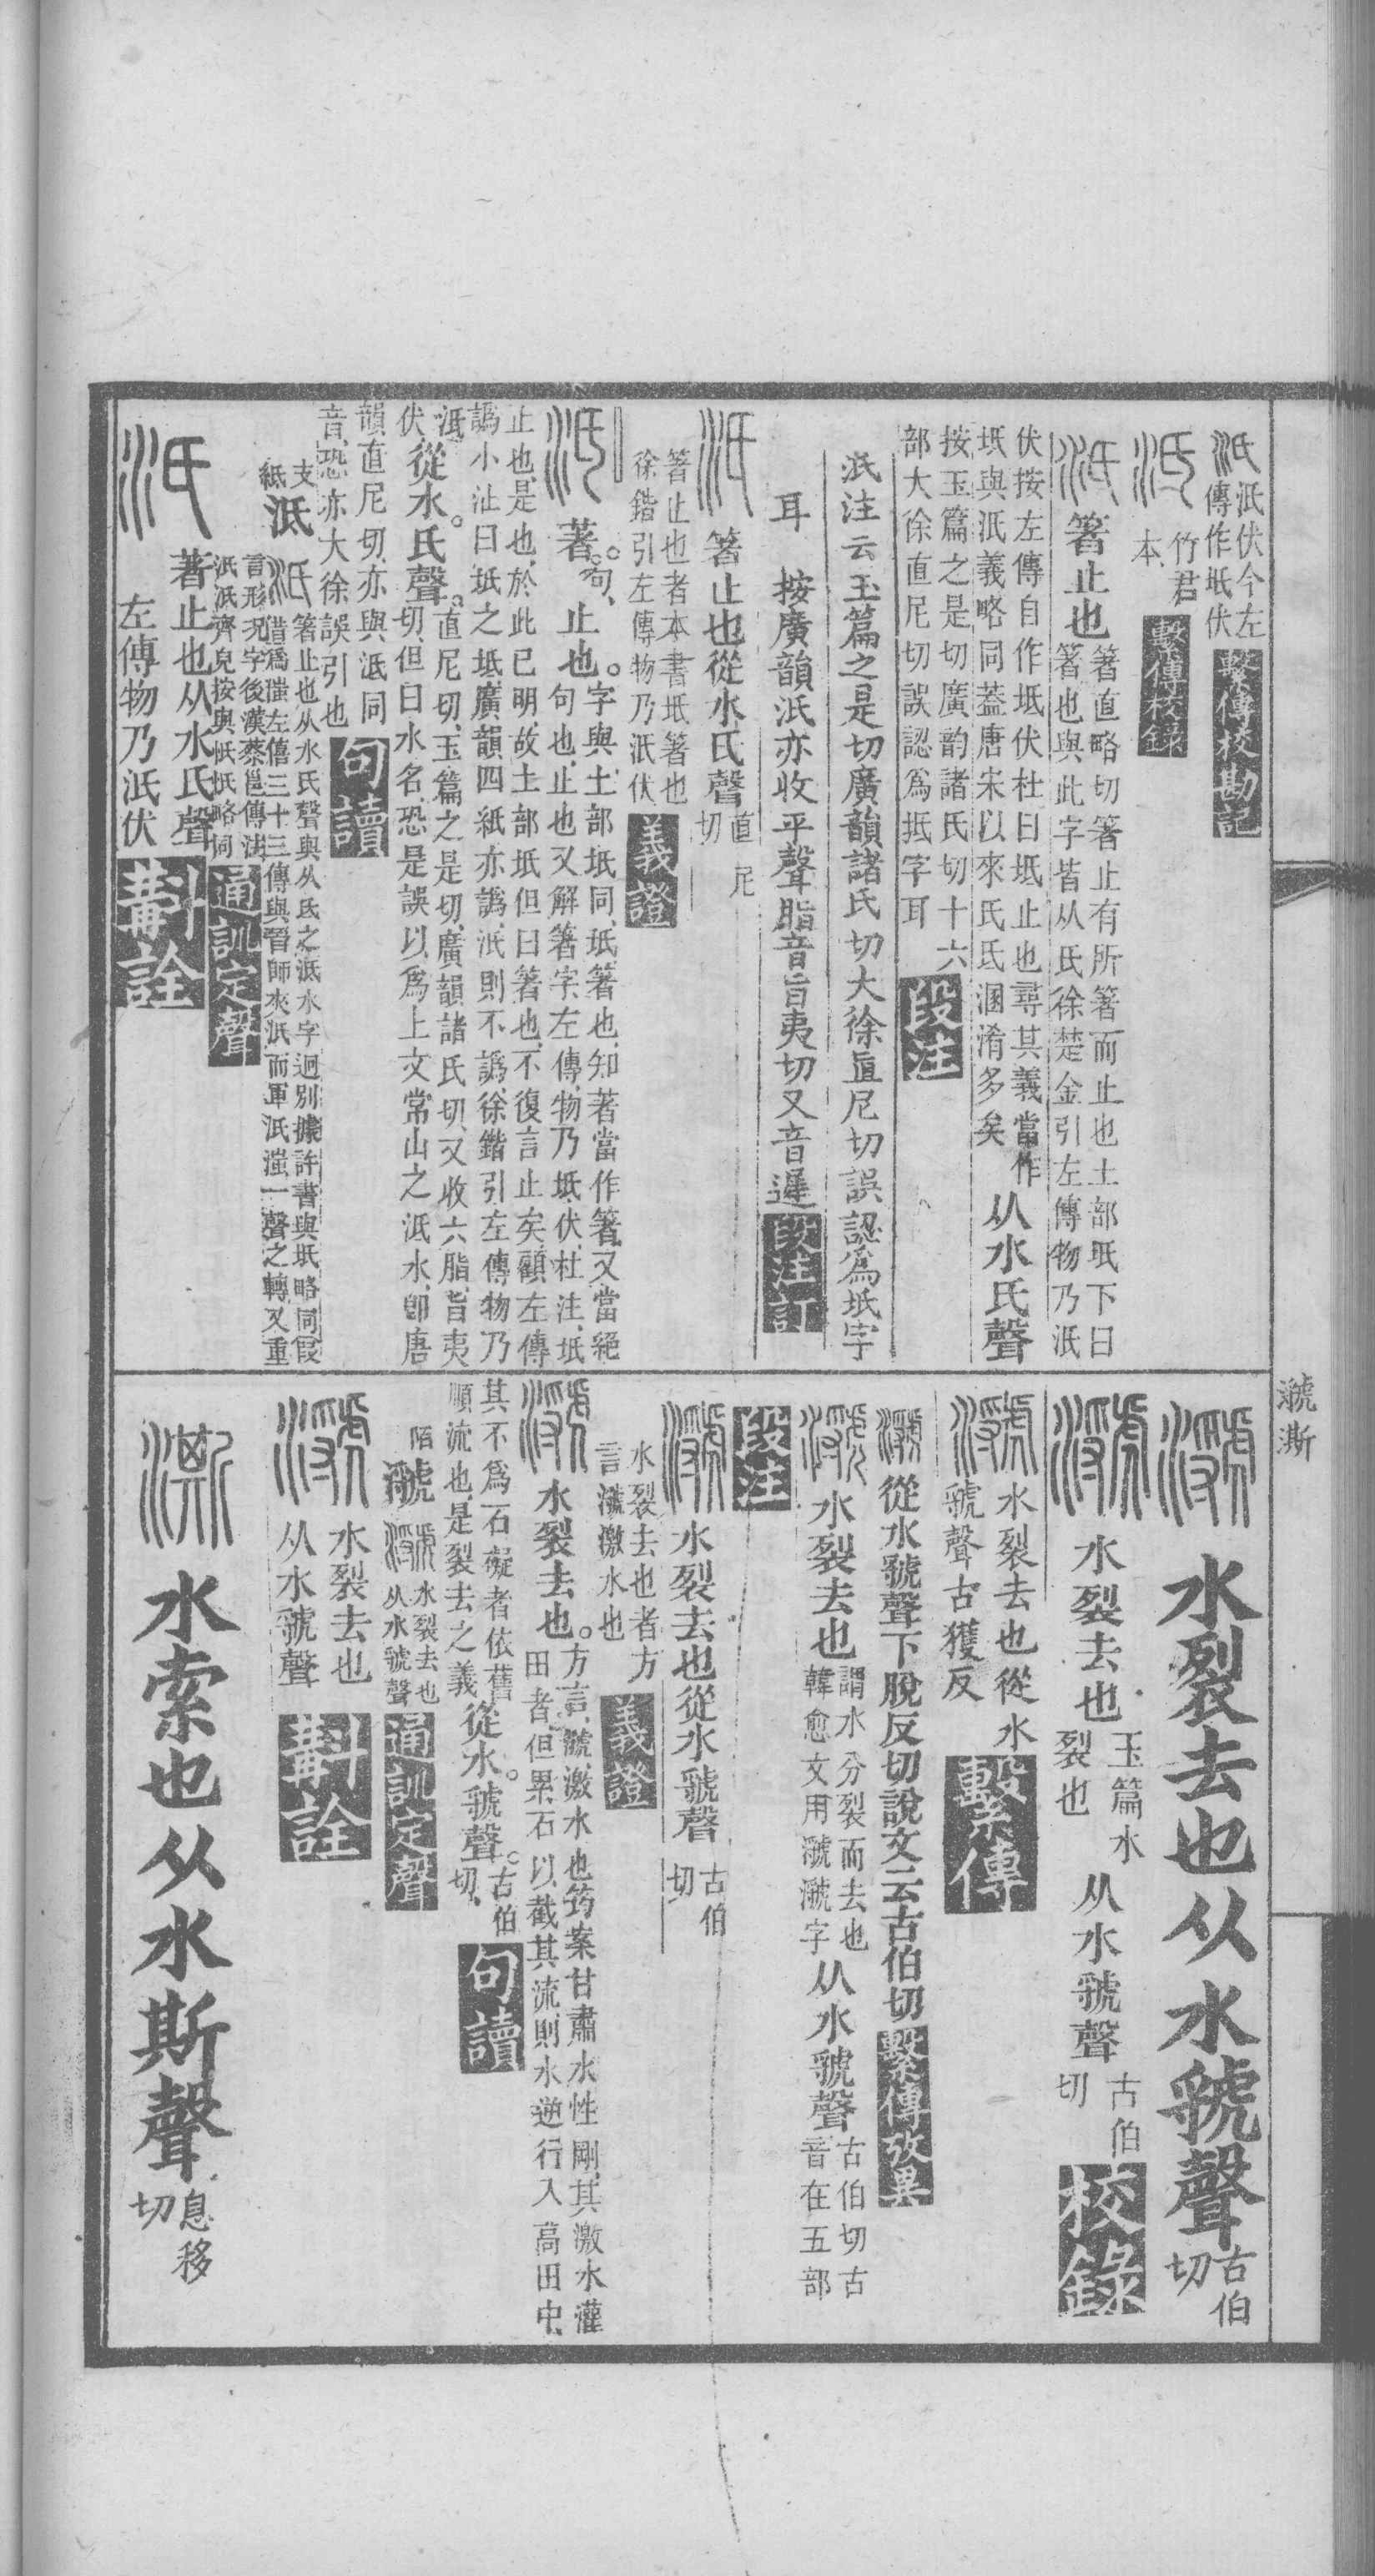 泜伏今左
傳作坻伏
繫傳校勘記
竹君
本
繫傳校錄
箸止也
箸直略切箸止有所箸而止也土部坁下曰
箸也與此字皆从氏徐楚金引左傳物乃汦
伏按左傳自作坻伏杜曰坻止也尋其義當作
坁與汦義略同葢唐宋以來氏氐溷淆多矣
从水氏聲
按玉篇之是切廣韵諸氏切十六
部大徐直尼切誤認爲抵字耳
段注
汦注云玉篇之是切廣韻諸氏切大徐直尼切誤認爲坻字
耳
按廣韻汦亦收平聲脂音旨夷切又音遲
段注訂
箸止也從水氏聲
直尼
切
箸止也者本書坻箸也
徐鍇引左傳物乃汦伏
義證
著句止也
字與土部坁同坁箸也知著當作箸又當絕
句也止也又解箸字左傳物乃坻伏杜注坻
止也是也於此已明故土部坁但曰箸也不復言止矣顧左傳
譌小沚曰坻之坻廣韻四紙亦譌汦則不譌徐鍇引左傳物乃
汦伏
從水氏聲
直尼切玉篇之是切廣韻諸氏切又收六脂旨夷
切但曰水名恐是誤以爲上文常山之泜水卽唐
韻直尼切亦與泜同
音恐亦大徐誤引也
句讀
支
紙
汦
箸止也从水氏聲與从氐之泜水字迥別據許書與坁略同叚
借爲滍左僖三十三傳與晉師夾泜而軍汦滍一聲之轉又重
言形況字後漢蔡邕傳注
汦汦齊皃按與忯坁略同
通訓定聲
著止也从水氏聲
左傳物乃汦伏
斠詮
㶁澌
水裂去也从水虢聲
古伯
切
水裂去也
玉篇水
裂也
从水虢聲
古伯
切
校錄
水裂去也從水
虢聲古獲反
繫傳
從水虢聲下脫反切說文云古伯切
繫傳攷異
水裂去也
謂水分裂而去也
韓愈文用㶁㶁字
从水虢聲
古伯切古
音在五部
段注
水裂去也從水虢聲
古伯
切
水裂去也者方
言㶁激水也
義證
水裂去也
方言㶁激水也筠案甘肅水性剛其激水灌
田者但累石以截其流則水逆行入高田中
其不爲石礙者依舊
順流也是裂去之義
從水虢聲
古伯
切
句讀
陌
㶁
水裂去也
从水虢聲
通訓定聲
水裂去也
从水虢聲
斠詮
水索也从水斯聲
息移
切